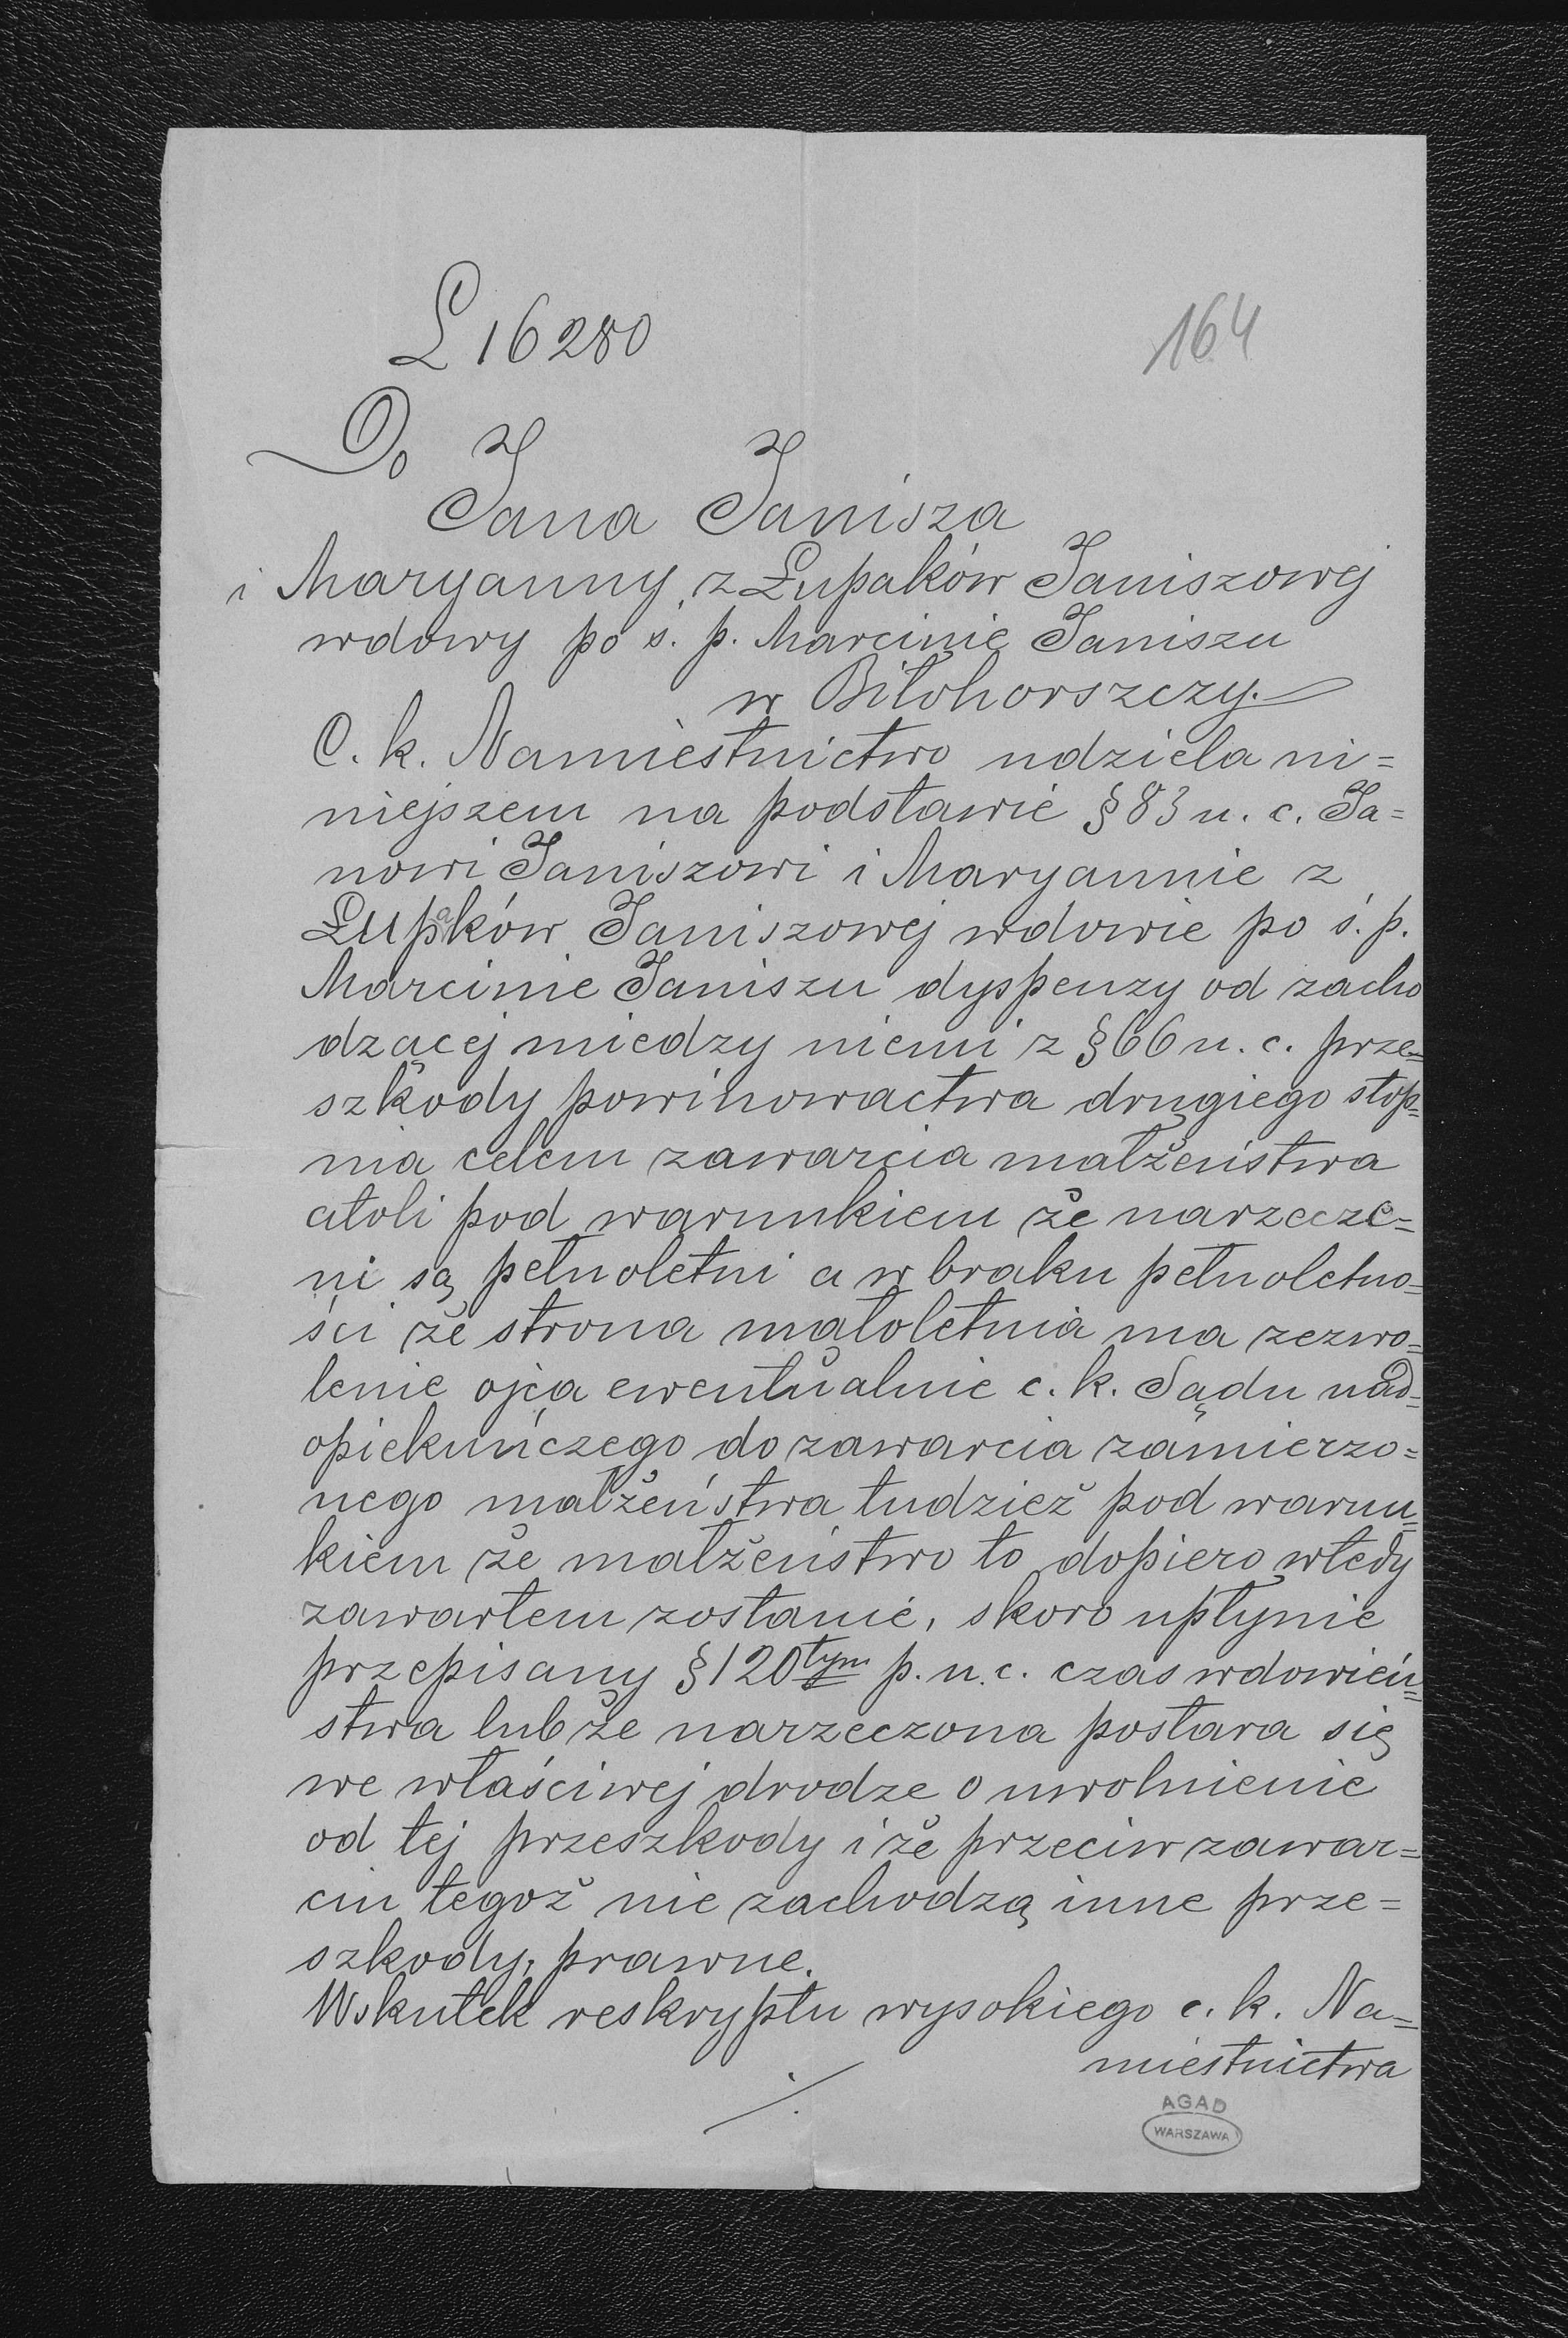 L 16280
164
Do
Jana Janisza
i Maryanny z Łupaków Janiszowej
wdowy po ś. p. Marcinie Janiszu
w Biłohorszczy.
C. k. Namiestnictwo udziela ni=
niejszem na podstawie § 83 u. c. Ja=
nowi Janiszowi i Maryannie z
Łupaków Janiszowej wdowie po ś. p.
Marcinie Janiszu dyspenzy od zacho
dzącej miedzy niemi z § 66 u. c. prze=
szkody powinowactwa drugiego stop=
nia celem zawarcia małżeństwa
atoli pod warunkiem że narzecze=
ni są pełnoletni a w braku pełnoletno=
ści że strona małoletnia ma zezwo=
lenie ojca ewentualnie c. k. Sądu nad=
opiekuńczego do zawarcia zamierzo=
nego małżeństwa tudzież pod warun=
kiem że małżeństwo to dopiero wtedy
zawartem zostanie, skoro upłynie
przepisany § 120tym p. u. c. czas wdowień=
stwa lub że narzeczona postara się
we właściwej drodze o uwolnienie
od tej przeszkody i że przeciw zawar=
ciu tegoż nie zachodzą inne prze=
szkody, prawne.
Wskutek reskryptu wysokiego c. k. Na=
miestnictwa
./.
AGAD
WARSZAWA